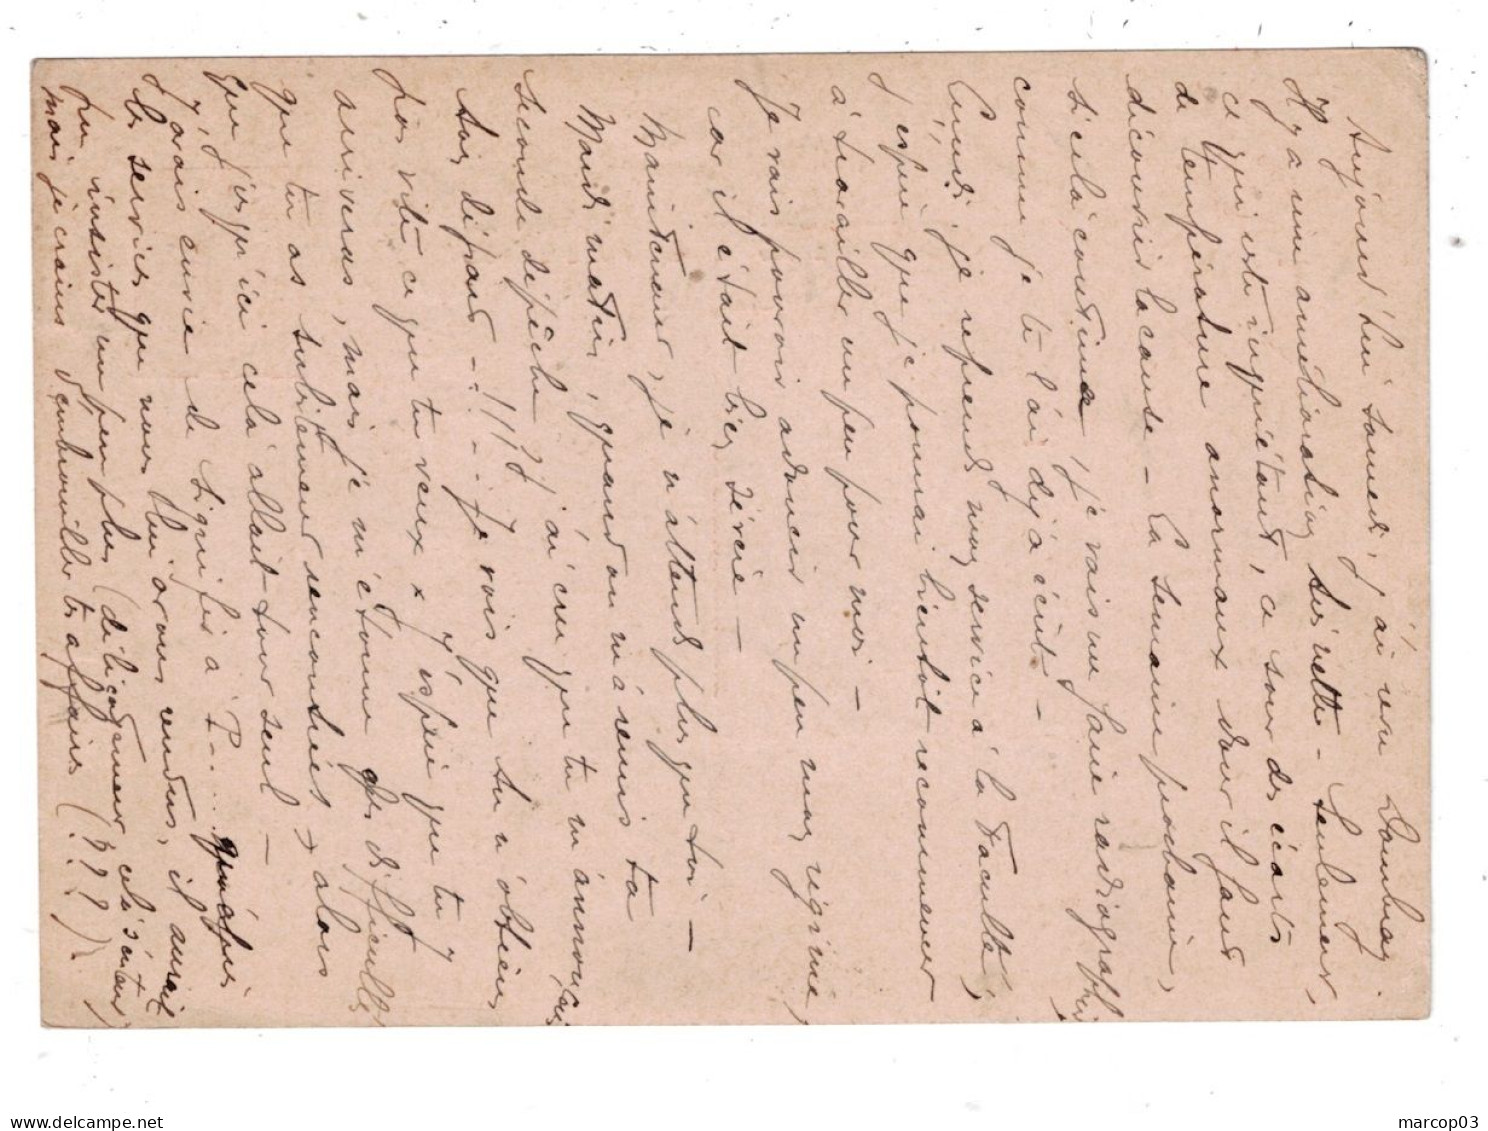 Aujourd'hui samedi, j'ai revu
Il y a une amélioration très nette - Seulement,
ce qui est inquiétant, ce sont des écarts
de température anormaux dont il faut
découvrir la cause - La semaine prochaine,
si cela continue, je vais me faire radiographier
comme je te l'ai déjà écrit -
Lundi je reprends mon service à la Faculté,
j'espère que je pourrai bientôt recommencer
à travailler un peu pour moi -
Je vais pouvoir adoucir un peu mon régime,
car il était bien sévère -
Maintenant, je n'attends plus que toi -
Mardi matin, quand on m'a remis ta
seconde dépêche j'ai cru que tu m'annonçais
ton départ - !!!? - Je vois que tu n'obtiens
pas vite ce que tu veux x J'espère que tu y
arriveras, mais je m'étonne des difficultés
que tu as subitement rencontrées x alors
que jusqu'ici cela allait tout seul -
J'avais envie de signifier à P.... que
les services que nous lui avons rendus, il aurait
pu insister un peu plus (délicatement cela s'entend)
mais je crains d'embrouiller tes affaires (???).
delcampe.net
marcop03